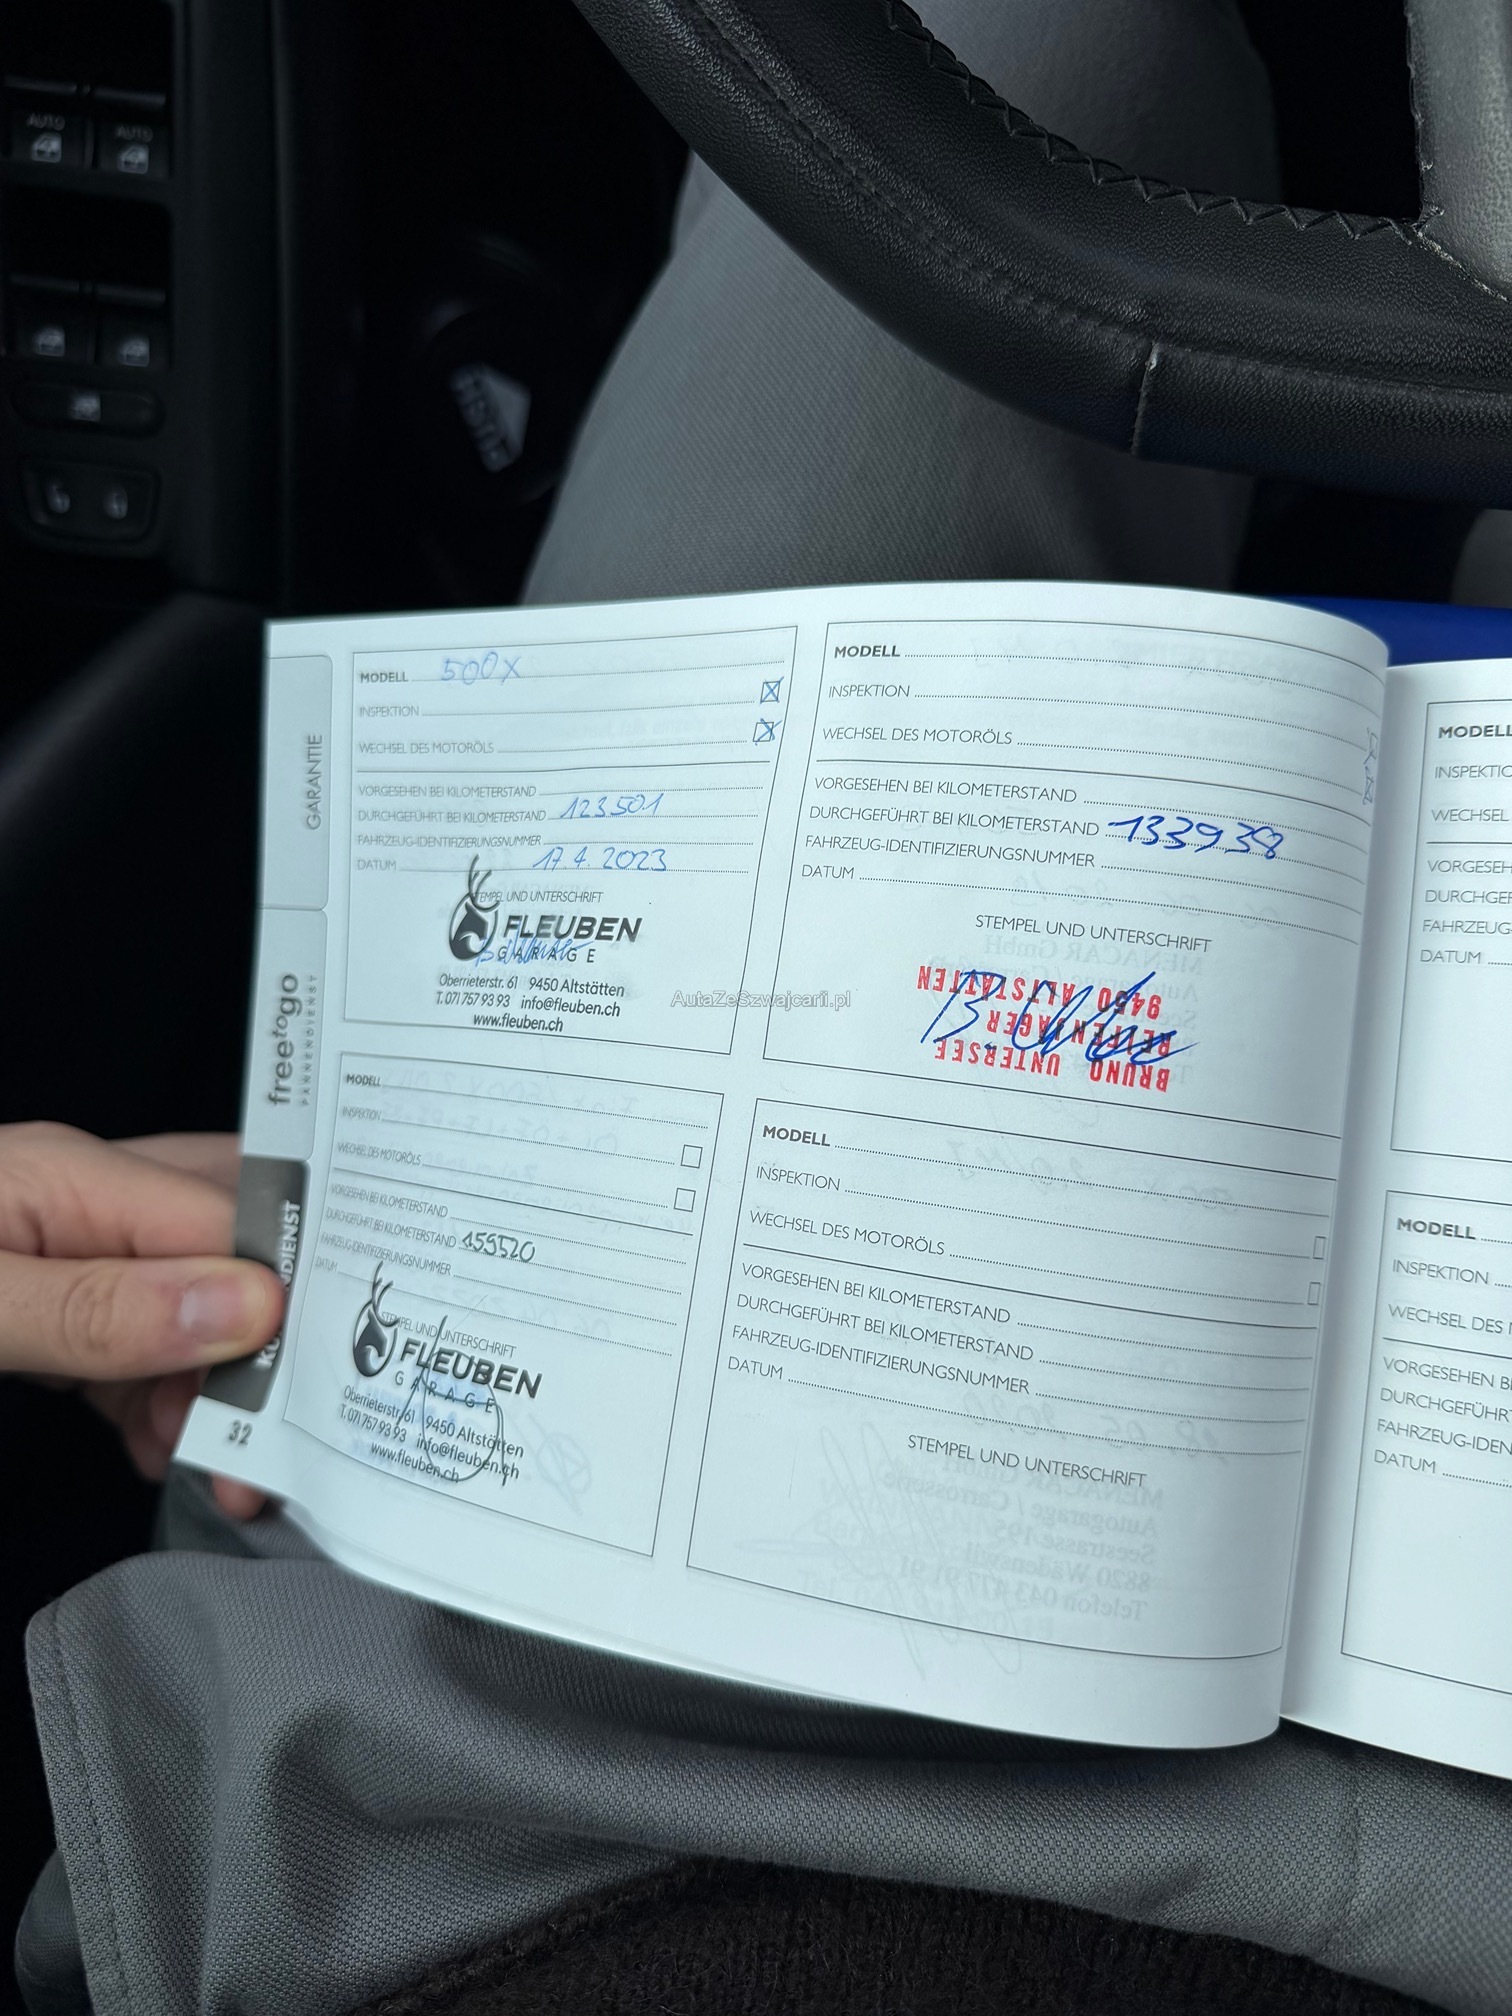 AUTO
AUTO
PUSH
GARANTIE
freetogo
PANNENDIENST
32
MODELL 500X
INSPEKTION
WECHSEL DES MOTORÖLS
VORGESEHEN BEI KILOMETERSTAND
DURCHGEFÜHRT BEI KILOMETERSTAND 123501
FAHRZEUG-IDENTIFIZIERUNGSNUMMER
DATUM 17.4.2023
STEMPEL UND UNTERSCHRIFT
FLEUBEN
GARAGE
Oberrieterstr. 61 9450 Altstätten
T. 071 757 93 93 info@fleuben.ch
www.fleuben.ch
MODELL
INSPEKTION
WECHSEL DES MOTORÖLS
VORGESEHEN BEI KILOMETERSTAND
DURCHGEFÜHRT BEI KILOMETERSTAND 133938
FAHRZEUG-IDENTIFIZIERUNGSNUMMER
DATUM
STEMPEL UND UNTERSCHRIFT
BRUNO UNTERSEE
REIFENJÄGER
9450 ALTSTÄTTEN
AutaZeSzwajcarii.pl
MODELL
INSPEKTION
WECHSEL DES MOTORÖLS
VORGESEHEN BEI KILOMETERSTAND
DURCHGEFÜHRT BEI KILOMETERSTAND 159520
FAHRZEUG-IDENTIFIZIERUNGSNUMMER
DATUM
STEMPEL UND UNTERSCHRIFT
FLEUBEN
GARAGE
Oberrieterstr. 61 9450 Altstätten
T. 071 757 93 93 info@fleuben.ch
www.fleuben.ch
MODELL
INSPEKTION
WECHSEL DES MOTORÖLS
VORGESEHEN BEI KILOMETERSTAND
DURCHGEFÜHRT BEI KILOMETERSTAND
FAHRZEUG-IDENTIFIZIERUNGSNUMMER
DATUM
STEMPEL UND UNTERSCHRIFT
MODELL
INSPEKTIO
WECHSEL
VORGESEH
DURCHGEF
FAHRZEUG-
DATUM
MODELL
INSPEKTION
WECHSEL DES
VORGESEHEN BE
DURCHGEFÜHRT
FAHRZEUG-IDEN
DATUM